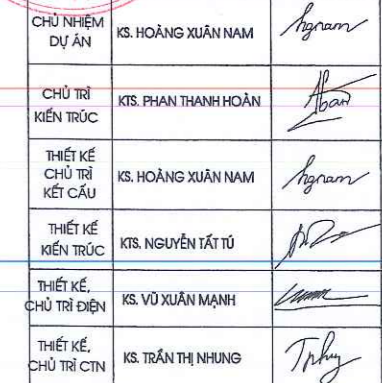 CHỦ NHIỆM
DỰ ÁN
KS. HOÀNG XUÂN NAM
hgnam
CHỦ TRÌ
KIẾN TRÚC
KTS. PHAN THANH HOÀN
THIẾT KẾ
CHỦ TRÌ
KẾT CẤU
KS. HOÀNG XUÂN NAM
hgnam
THIẾT KẾ
KIẾN TRÚC
KTS. NGUYỄN TẤT TÚ
THIẾT KẾ,
CHỦ TRÌ ĐIỆN
KS. VŨ XUÂN MẠNH
THIẾT KẾ,
CHỦ TRÌ CTN
KS. TRẦN THỊ NHUNG